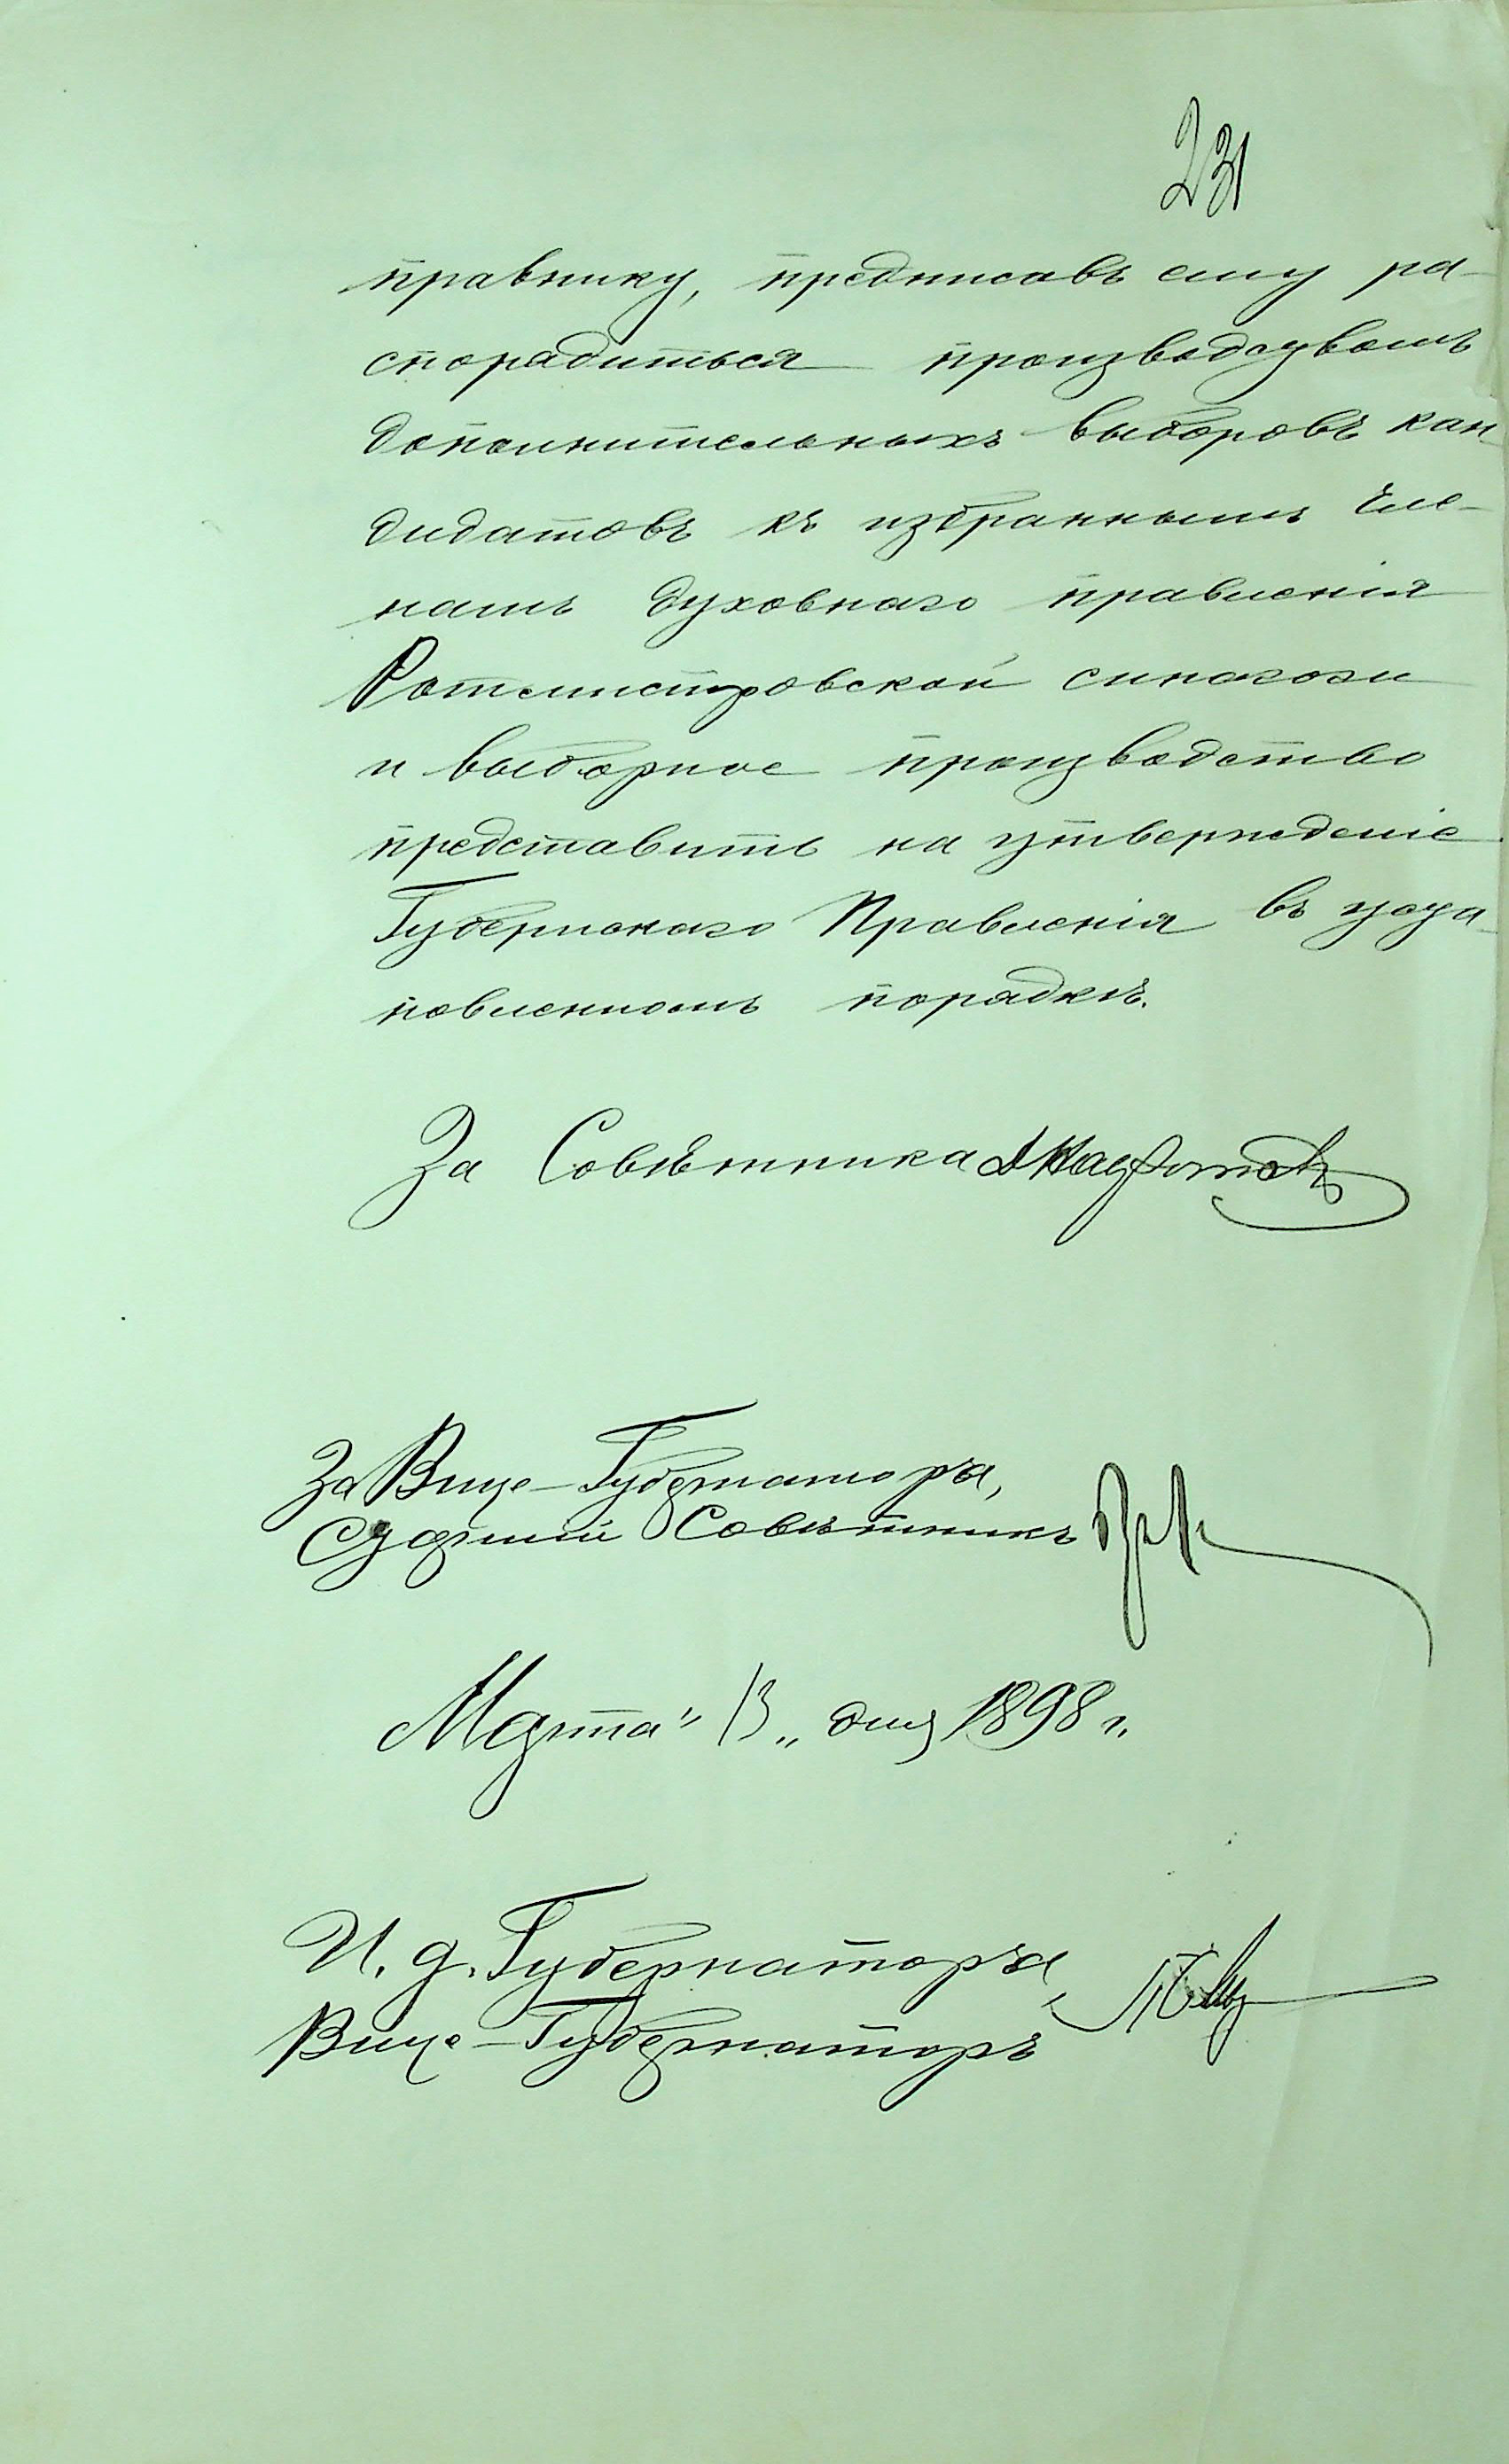 231
правнику, предписавъ ему ра-
спорядиться производствомъ
дополнительныхъ выборовъ кан-
дидатовъ къ избраннымъ чле-
намъ духовнаго правленія
Ротмистровской синагоги
и выборное производство
представить на утвержденіе
Губернскаго Правленія въ уста-
новленномъ порядкѣ.
За Совѣтника
За Вице-Губернатора,
Старшій Совѣтникъ
Марта "13" дня 1898 г.
И. д. Губернатора
Вице-Губернаторъ